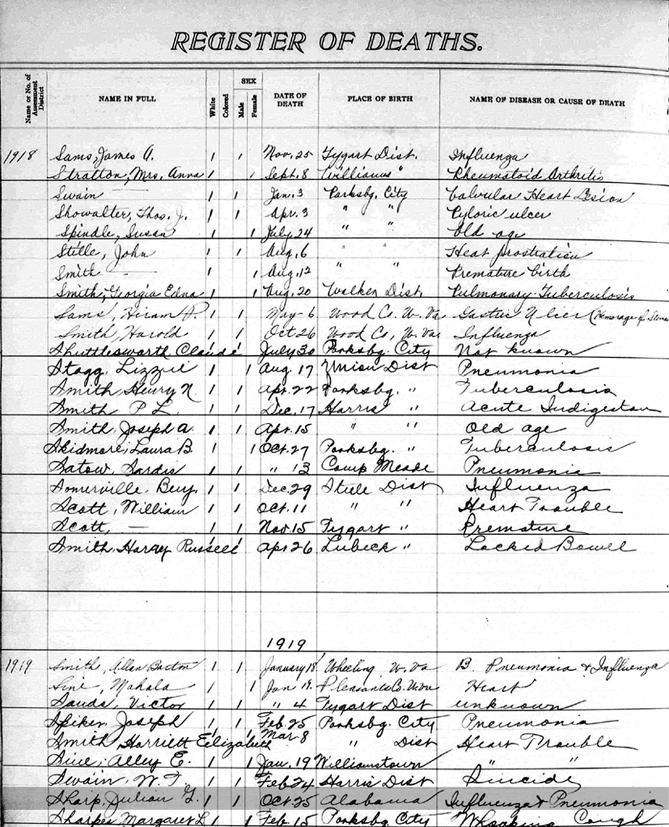 REGISTER OF DEATHS.
Name or No. of Assessment District NAME IN FULL White Colored SEX Male Female DATE OF DEATH PLACE OF BIRTH NAME OF DISEASE OR CAUSE OF DEATH
1918 Sams, James A. 1 1 Nov. 25 Tygart Dist. Influenza
Stratton, Mrs. Anna 1 1 Sept. 8 Williams " Rheumatoid Arthritis
Swain 1 1 Jan. 3 Parksbg. City Valvular Heart Lesion
Showalter, Thos. J. 1 1 Apr. 3 " " Pyloric ulcer
Spindle, Susan 1 1 July 24 " " Old age
Stille, John 1 1 Aug. 6 " " Heat prostration
Smith — 1 1 Aug. 12 " " Premature birth
Smith, Georgia Edna 1 1 Aug. 20 Walker Dist. Pulmonary Tuberculosis
Sams, Hiram P. 1 1 May - 6 Wood Co. W. Va
Smith Harold 1 1 Oct 26 Wood Co, W. Va Influenza
Shuttlesworth Claude 1 July 30 Parksbg. City Not known
Stagg. Lizzie 1 1 Aug 17 Union Dist Pneumonia
Smith Henry N 1 1 Apr. 22 Parksbg. " Tuberculosis
Smith P L. 1 1 Dec. 17 Harris " Acute Indigestion
Smith Joseph A. 1 1 Apr. 15 " " Old age
Skidmore, Laura B. 1 1 Oct. 27 Parksbg. " Tuberculosis
Satow, Sardis 1 1 " 13 Camp Meade Pneumonia
Somerville, Benj. 1 1 Dec. 29 Steele Dist Influenza
Scott, William 1 1 Oct. 11 " " Heart Trouble
Scott, — 1 1 Nov. 15 Tygart " Premature
Smith Harvey Russell 1 Apr 26 Lubeck " Locked Bowel
1919
1919 Smith, Allan Barton 1 1 January 18 Wheeling W. Va B. Pneumonia & Influenza
Sine, Mahala 1 1 Jan 19. Pleasants Co. W. Va Heart
Sauds, Victor 1 1 " 4 Tygart Dist unknown
Spiker Joseph 1 1 Feb 25 Parksbg. City Pneumonia
Smith Harriett Eelizabeth 1 Mar 8 " Dist Heart Trouble
Sine, Alley E. 1 1 Jan. 19 Williamstown
Swain, W. T. 1 1 Feb 24 Harris Dist Suicide "
Sharp, Julian G. 1 1 Oct 25 Alabama Influenza & Pneumonia
Sharpe, Margaret L. 1 1 Feb 15 Parksbg City Whooping Cough